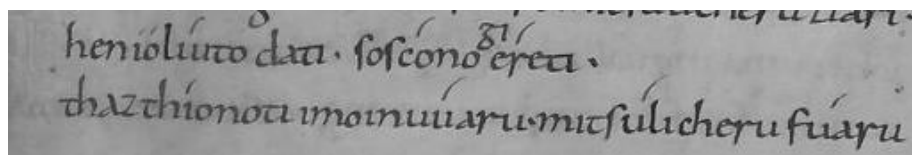 henióliúto dati · soscóno giéreti ·
thazthíonoti imoinuuáru · mitsúlicheru fúaru